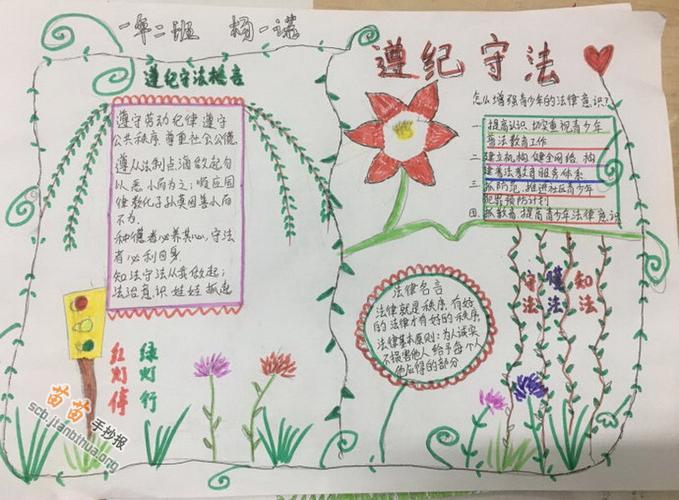 一年二班 杨一诺
遵纪守法
遵纪守法格言
遵守劳动纪律 遵守
公共秩序 尊重社会公德
遵从法制点滴做起勿
以恶小而为之；顺应国
律教化子孙莫因善小而
不为.
种德者必养其心，守法
有必利己身
知法守法从我做起；
法治意识 娃娃抓起
红灯停
绿灯行
怎么增强青少年的法律意识？
一 提高认识 切实重视青少年
普法教育工作
二 建立机构 健全网络 构
建普法教育服务体系
三 抓防范，推进社区青少年
犯罪预防计划
四 抓教育，提高青少年法律意识
法律名言
法律就是秩序，有好
的法律才有好的秩序
法律基本原则：为人诚实
不损害他人 给予每个人
他应得的部分
守法
懂法
知法
苗苗手抄报
scb.jianbihua.org